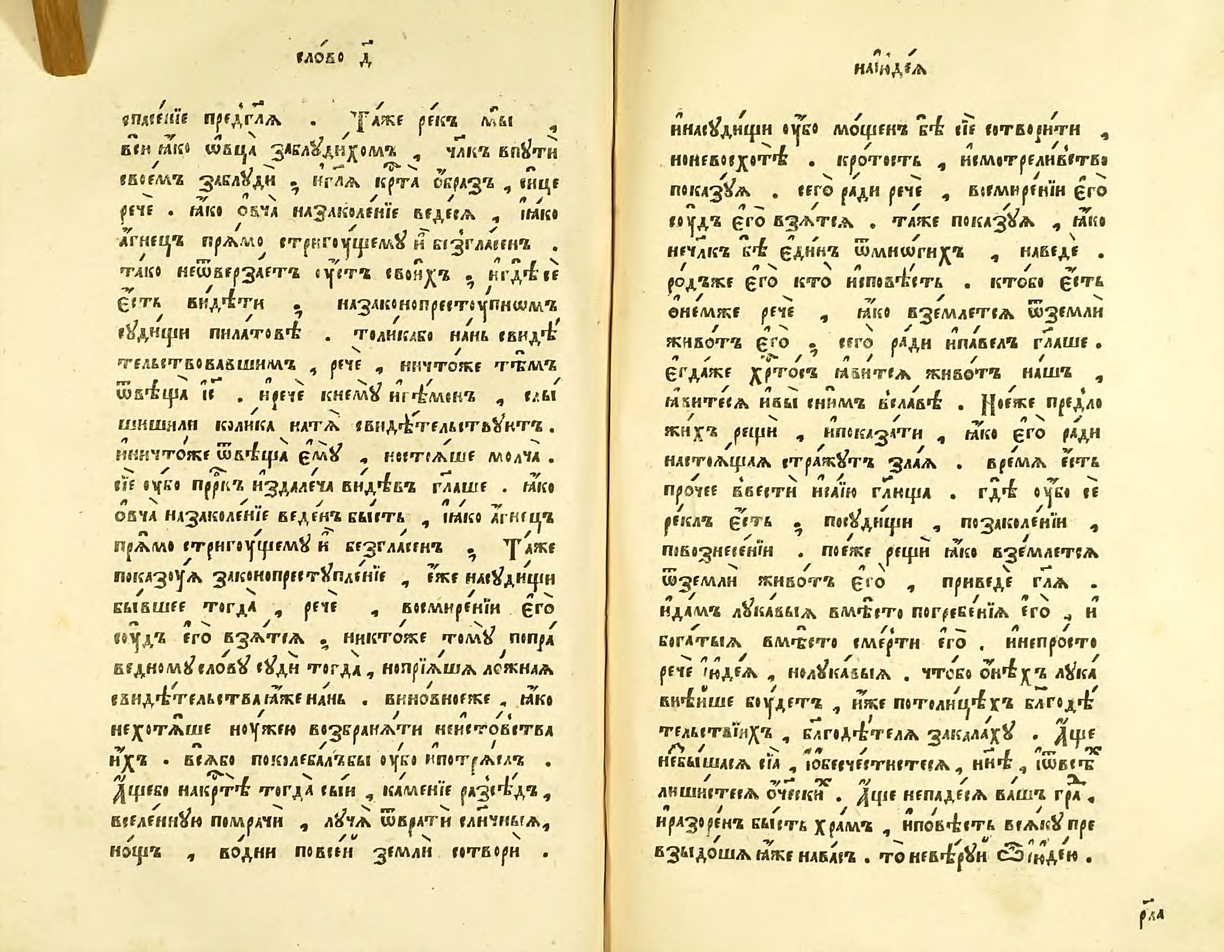 сло́во д҃
спасе́нїе предг҃ля . Та́же ре́къ мы̀ ,
вси ꙗ҆́ко ѡ҆вца̀ заблꙋди́хомъ , чл҃къ впутѝ
свое́мъ заблꙋдѝ ; и҆гл҃ѧ кр҃та̀ о҆́бразъ , си́це
речѐ . ꙗ҆́ко ѻ҆вча̀ назаколе́нїе ведесѧ , и҆ꙗ҆́ко
а҆́гнецъ прѧ́мо стригоу́щемꙋ и҆̀ безгла́сенъ .
та́ко неѿверза́етъ оу҆́стъ свои́хъ ; и҆гдѣ̀ сѐ
є҆́сть ви́дѣти ; назаконопрестоу́пнѡмъ
сꙋди́щи пила́товѣ . толи́кабо на́нь свидѣ́
тельствовавшимъ , речѐ , ничто́же тѣ́мъ
ѿвѣща̀ і҆с҃ . и҆речѐ кнемꙋ̀ и҆ге́монъ , слы́
шишили коли́ка натѧ̀ свидѣ́тельствꙋютъ .
и҆ничто́же ѿвѣща̀ є҆мꙋ̀ , ностоѧ́ше молча̀ .
сїѐ оу҆́бо прⷪ҇ркъ и҆здале́ча ви́дѣвъ гл҃аше . ꙗ҆́ко
ѻ҆вча̀ назаколе́нїе веде́нъ бы́сть , и҆ꙗ҆́ко а҆́гнецъ
прѧ́мо стригоу́щемꙋ и҆̀ безгла́сенъ ; Та́же
показоу́ѧ законопрестꙋпле́нїе , є҆́же насꙋди́щи
бы́вшее тогда̀ , речѐ , восмире́нїи є҆го̀
соу́дъ є҆го̀ взѧ́тсѧ ; никто́же томꙋ̀ попра́
ведномꙋсло́вꙋ сꙋдѝ тогда̀ , нопрїѧ́шѧ ло́жнаѧ
свидѣ́тельства ꙗ҆́же на́нь . вино́вноеже , ꙗ҆́ко
нехотѧ́ше ноу́жею возбранѧ́ти неи́стовства
и҆́хъ . всѧ́бо поколеба́лъбы оу҆́бо и҆потрѧ́слъ .
А҆́щебо накрⷭ҇тѣ̀ тогда̀ сы́и , ка́менїе разсѣ́дъ ,
вселе́ннꙋю помрачѝ , лꙋча̀ ѿвратѝ сл҃ничныѧ ,
но́щъ , во́дни повсе́й землѝ сотворѝ .
наі҆ꙋде́ѧ
и҆насꙋди́щи оу҆́бо мо́щенъ бѣ̀ сїѐ сотвори́ти ,
ноневосхотѣ̀ . кро́тость , и҆смотрели́вство
показꙋ́ѧ . сего̀ ра́ди речѐ , всмире́нїи є҆го̀
соу́дъ є҆го̀ взѧ́тсѧ . та́же показꙋ́ѧ , ꙗ҆́ко
нечл҃къ бѣ̀ є҆ди́нъ ѿмно́гихъ , наведѐ .
ро́дъже є҆го̀ кто̀ и҆сповѣ́сть . кто́бо є҆́сть
ѻ҆не́мже речѐ , ꙗ҆́ко взе́млетсѧ ѿземлѝ
живо́тъ є҆го̀ ; сего̀ ра́ди и҆па́велъ гл҃аше .
є҆гда́же хрⷭ҇то́съ ꙗ҆ви́тсѧ живо́тъ на́шъ ,
ꙗ҆ви́тесѧ и҆вы̀ сни́мъ всла́вѣ . Ное́же предло
жи́хъ рещѝ , и҆показа́ти , ꙗ҆́ко є҆го̀ ра́ди
настоѧ́щаѧ стра́жꙋтъ зла́ѧ . вре́мѧ є҆́сть
про́чее ввестѝ и҆са́їю гл҃юща . гдѣ̀ оу҆́бо сѐ
ре́клъ є҆́сть ; посꙋди́щи , позаколе́нїи ,
повознесе́нїи . пое́же рещѝ ꙗ҆́ко взе́млетсѧ
ѿземлѝ живо́тъ є҆го̀ , приведѐ гл҃ѧ .
и҆да́мъ лꙋка́выѧ вмѣ́сто погребе́нїѧ є҆го̀ , и҆̀
бога́тыѧ вмѣ́сто сме́рти є҆го̀ . и҆непро́сто
речѐ і҆ꙋде́ѧ , нолꙋка́выѧ . что́бо ѻ҆нѣ́хъ лꙋка
внѣ́йше боу́детъ , и҆́же потоли́цѣхъ бл҃годѣ́
тельствїихъ , бл҃годѣ́телѧ закала́хꙋ . А҆́ще
небы́шасѧ сїѧ̀ , і҆обезче́стистесѧ , нн҃ѣ ,
лиши́стесѧ ѻ҆те́ческихъ . А҆́ще непаде́сѧ ва́шъ гра́ ,
и҆разоре́нъ бы́сть хра́мъ , и҆по́вѣсть всѧ́кꙋ пре
взыдо́шѧ ꙗ҆́же нава́съ . то̀ невѣ́рꙋй ѽ і҆ꙋде́ю .
р҃ла